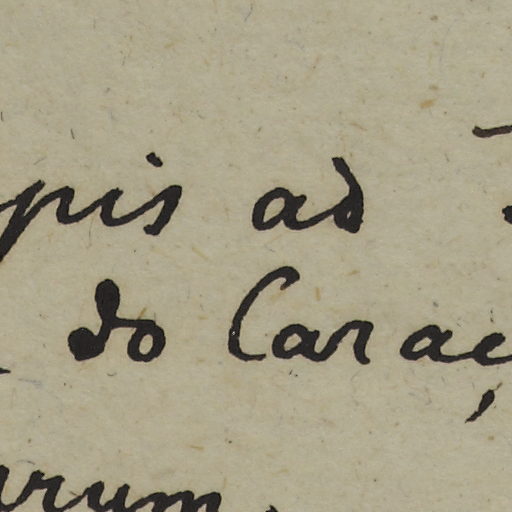 pis ad
do Caraç
rum.